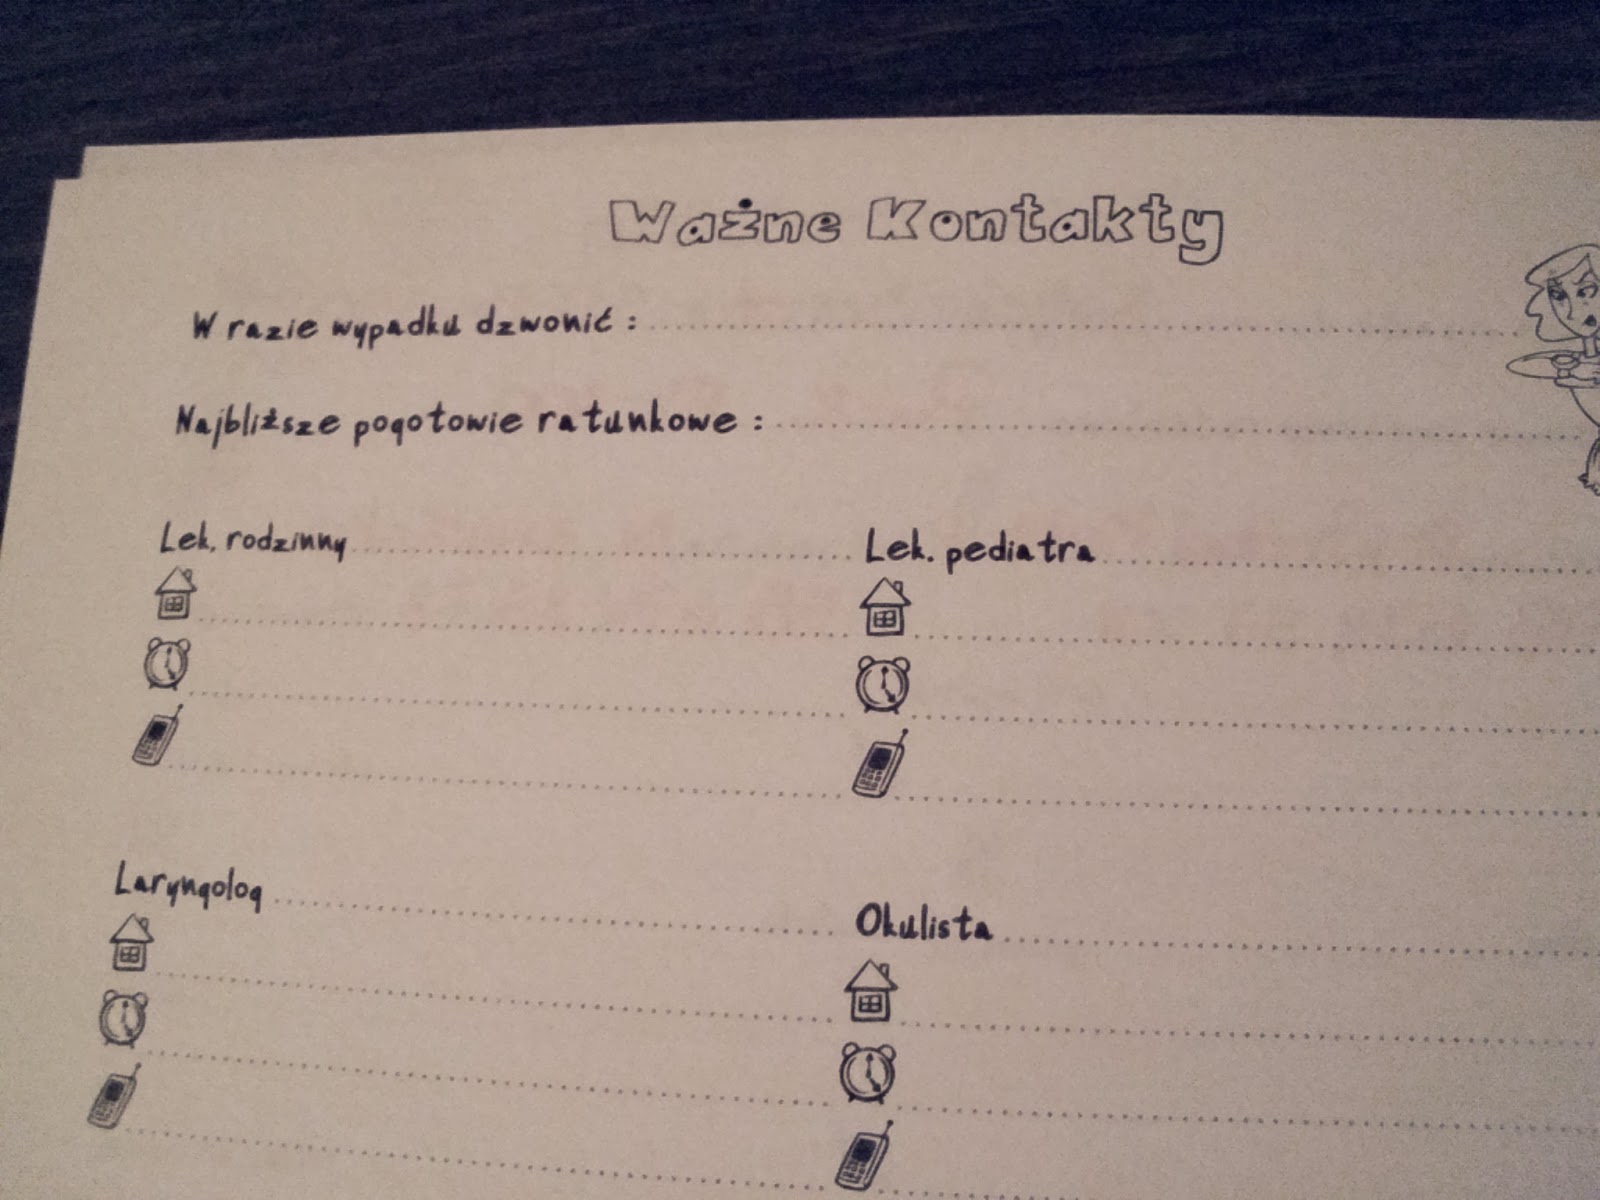 Ważne Kontakty
W razie wypadku dzwonić :
Najbliższe pogotowie ratunkowe :
Lek. rodzinny
Lek. pediatra
Laryngolog
Okulista